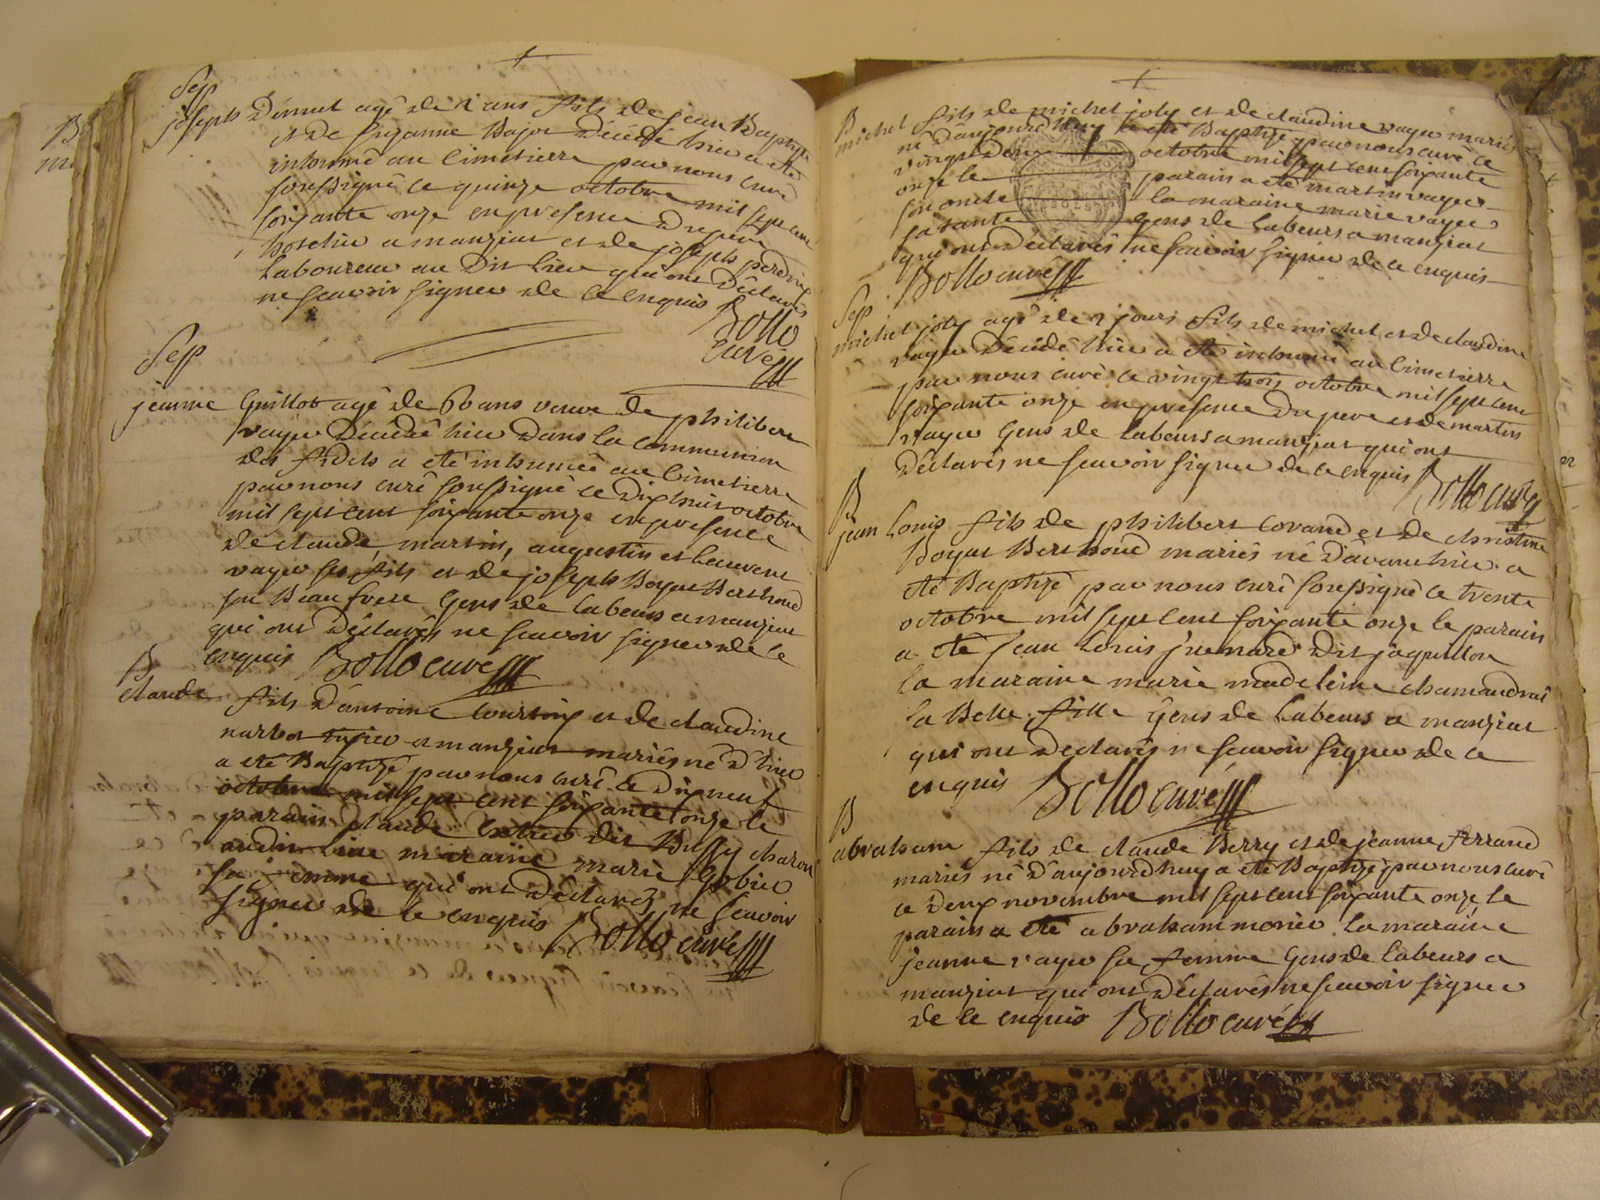 Sep
joseph Donnet agé de 2 ans fils de jean Baptiste
et de suzanne Bajor décédé hier a été
inhumé au Cimetierre par nous curé
soussigné ce quinze octobre mil sept cent
soixante onze en presence du pere
hotelier a manziat et de joseph perdrix
Laboureur au Dit lieu qui ont Déclarés
ne scavoir signer de ce enquis
Bollo
curé
Sep
jeanne Guillot agé de 60 ans veuve de philibert
vayer Décédé hier Dans la Communion
des fidels a été inhumée au Cimetierre
par nous curé soussigné ce Dixhuit octobre
mil sept cent soixante onze en presence
de claude martin, augustin et Laurent
vayer ses fils et de joseph Boyat Berthoud
son Beau frere Gens de Labeurs a manziat
qui ont Déclarés ne scavoir signer de ce
enquis Bollo curé
B
claude fils d'antoine Courtoix et de claudine
narbot a manziat mariés né d'hier
a été Baptizé par nous curé ce Dixneuf
octobre mil sept cent soixante onze le
parain claude dit Buffy charon
audit lieu maraine marie Gobier
sa femme qui ont Déclarés ne scavoir
signer de ce enquis Bollo curé
B
michel fils de michel joly et de claudine vayer mariés
né d'aujourd'huy a été Baptizé par nous curé ce
vingt deux octobre mil sept cent soixante
onze le parain a été martin vayer
son oncle la maraine marie vayer
sa tante Gens de Labeurs a manziat
qui ont Déclarés ne scavoir signer de ce enquis
Bollo curé
Sep
michel joly agé de 2 jours fils de michel et de claudine
vayer Décédé hier a été inhumé au Cimetierre
par nous curé ce vingt trois octobre mil sept cent
soixante onze en presence du pere et de martin
vayer Gens de Labeurs a manziat qui ont
Déclarés ne scavoir signer de ce enquis Bollo curé
B
jean Louis fils de philibert Corand et de christine
Boyat Berthoud mariés né d'avant hier a
été Baptizé par nous curé soussigné ce trente
octobre mil sept cent soixante onze le parain
a été jean Louis Dit jaquillon
la maraine marie madeleine chamandrai
sa Belle fille Gens de Labeurs a manziat
qui ont Declarés ne scavoir signer de ce
enquis Bollo curé
B
abraham fils de claude Berry et de jeanne ferrand
mariés né d'aujourd'huy a été Baptizé par nous curé
ce deux novembre mil sept cent soixante onze le
parain a été abraham monier la maraine
jeanne vayer sa femme Gens de Labeurs a
manziat qui ont Déclarés ne scavoir signer
de ce enquis Bollo curé